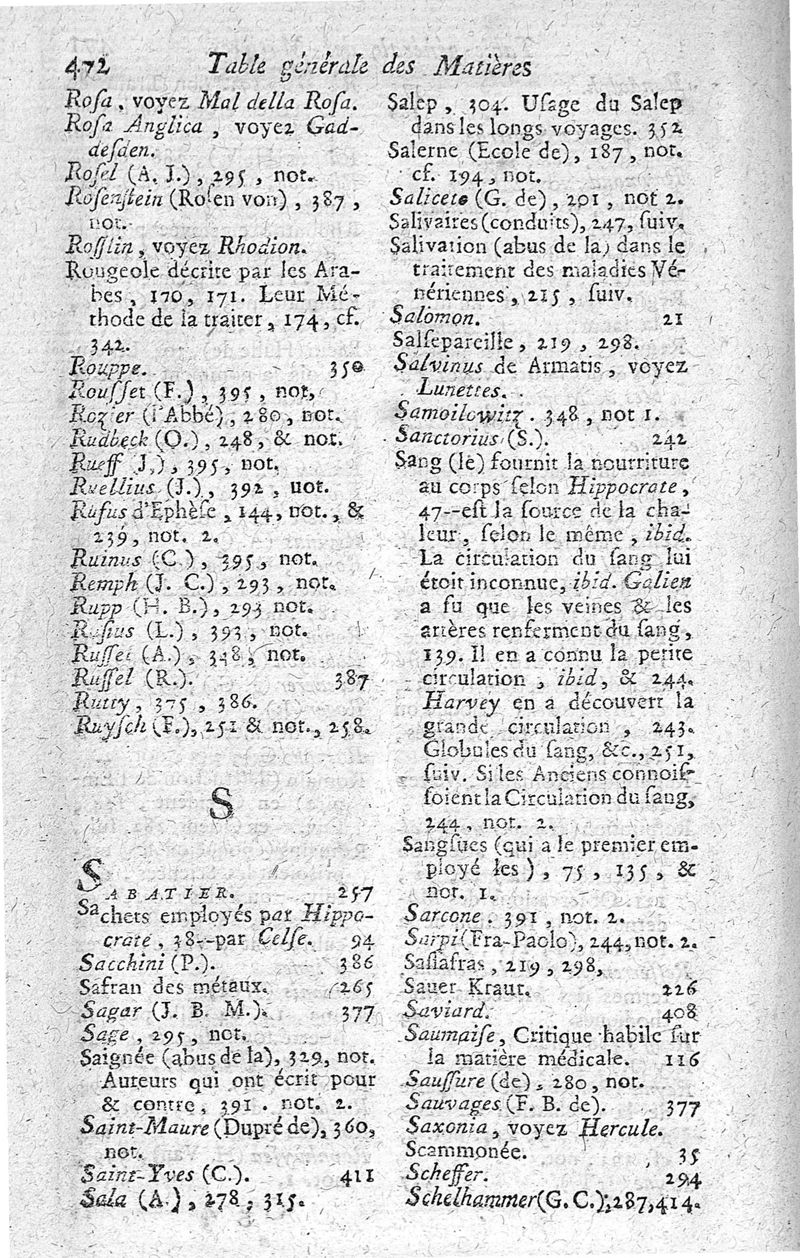 472 Table générale des Matières
Rosa, voyez Mal della Rosa.
Rosa Anglica, voyez Gad-
desden.
Rosel (A. J.), 295, not.
Rosenstein (Rosen von), 387,
not.
Rosslin, voyez Rhodion.
Rougeole décrite par les Ara-
bes, 170, 171. Leur Mé-
thode de la traiter, 174, cf.
342.
Rouppe. 350
Rousset (F.), 395, not,
Rozier (l'Abbé), 280, not.
Rudbeck (O.), 248, & not.
Rueff J.), 395, not.
Ruellius (J.), 392, uot.
Rufus d'Ephèse, 144, not., &
239, not. 2.
Ruinus (C.), 395, not.
Remph (J. C.), 293, not.
Rupp (H. B.), 293 not.
Rusius (L.), 393, not.
Russel (A.), 348, not.
Russel (R.). 387
Rutty, 375, 386.
Ruysch (F.), 251 & not., 258.
S
SABATIER. 257
Sachets employés par Hippo-
crate, 38--par Celse. 94
Sacchini (P.). 386
Safran des métaux. 265
Sagar (J. B. M.). 377
Sage, 295, not.
Saignée (abus de la), 329, not.
Auteurs qui ont écrit pour
& contre, 391. not. 2.
Saint-Maure (Dupré de), 360,
not.
Saint-Yves (C.). 411
Sala (A.), 278, 315.
Salep, 304. Usage du Salep
dans les longs voyages. 352
Salerne (Ecole de), 187, not.
cf. 194, not.
Saliceto (G. de), 201, not 2.
Salivaires (conduits), 247, suiv.
Salivation (abus de la) dans le
traitement des maladies Vé-
nériennes, 215, suiv.
Salomon. 21
Salsepareille, 219, 298.
Salvinus de Armatis, voyez
Lunettes.
Samoilowitz. 348, not 1.
Sanctorius (S.). 242
Sang (le) fournit la nourriture
au corps selon Hippocrate,
47--est la source de la cha-
leur, selon le même, ibid.
La circulation du sang lui
étoit inconnue, ibid. Galien
a su que les veines & les
artères renferment du sang,
139. Il en a connu la petite
circulation, ibid, & 244.
Harvey en a découvert la
grande circulation, 243.
Globules du sang, &c., 251,
suiv. Si les Anciens connois-
soient la Circulation du sang,
244, not. 2.
Sangsues (qui a le premier em-
ployé les), 75, 135, &
not. 1.
Sarcone. 391, not. 2.
Sarpi (Fra-Paolo), 244, not. 2.
Sassafras, 219, 298,
Sauer Kraut. 226
Saviard. 408
Saumaise, Critique habile sur
la matière médicale. 116
Saussure (de), 280, not.
Sauvages (F. B. de). 377
Saxonia, voyez Hercule.
Scammonée. 35
Scheffer. 294
Schelhammer (G. C.), 287, 414.